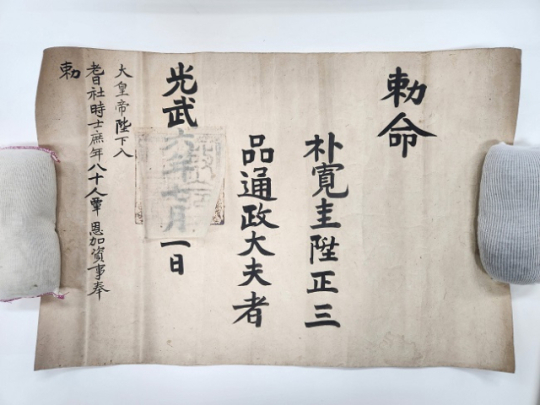 勅命
朴寬圭陞正三
品通政大夫者
光武六年七月一日
大皇帝陛下入
耆社時士庶年八十人覃 恩加資事奉
勅